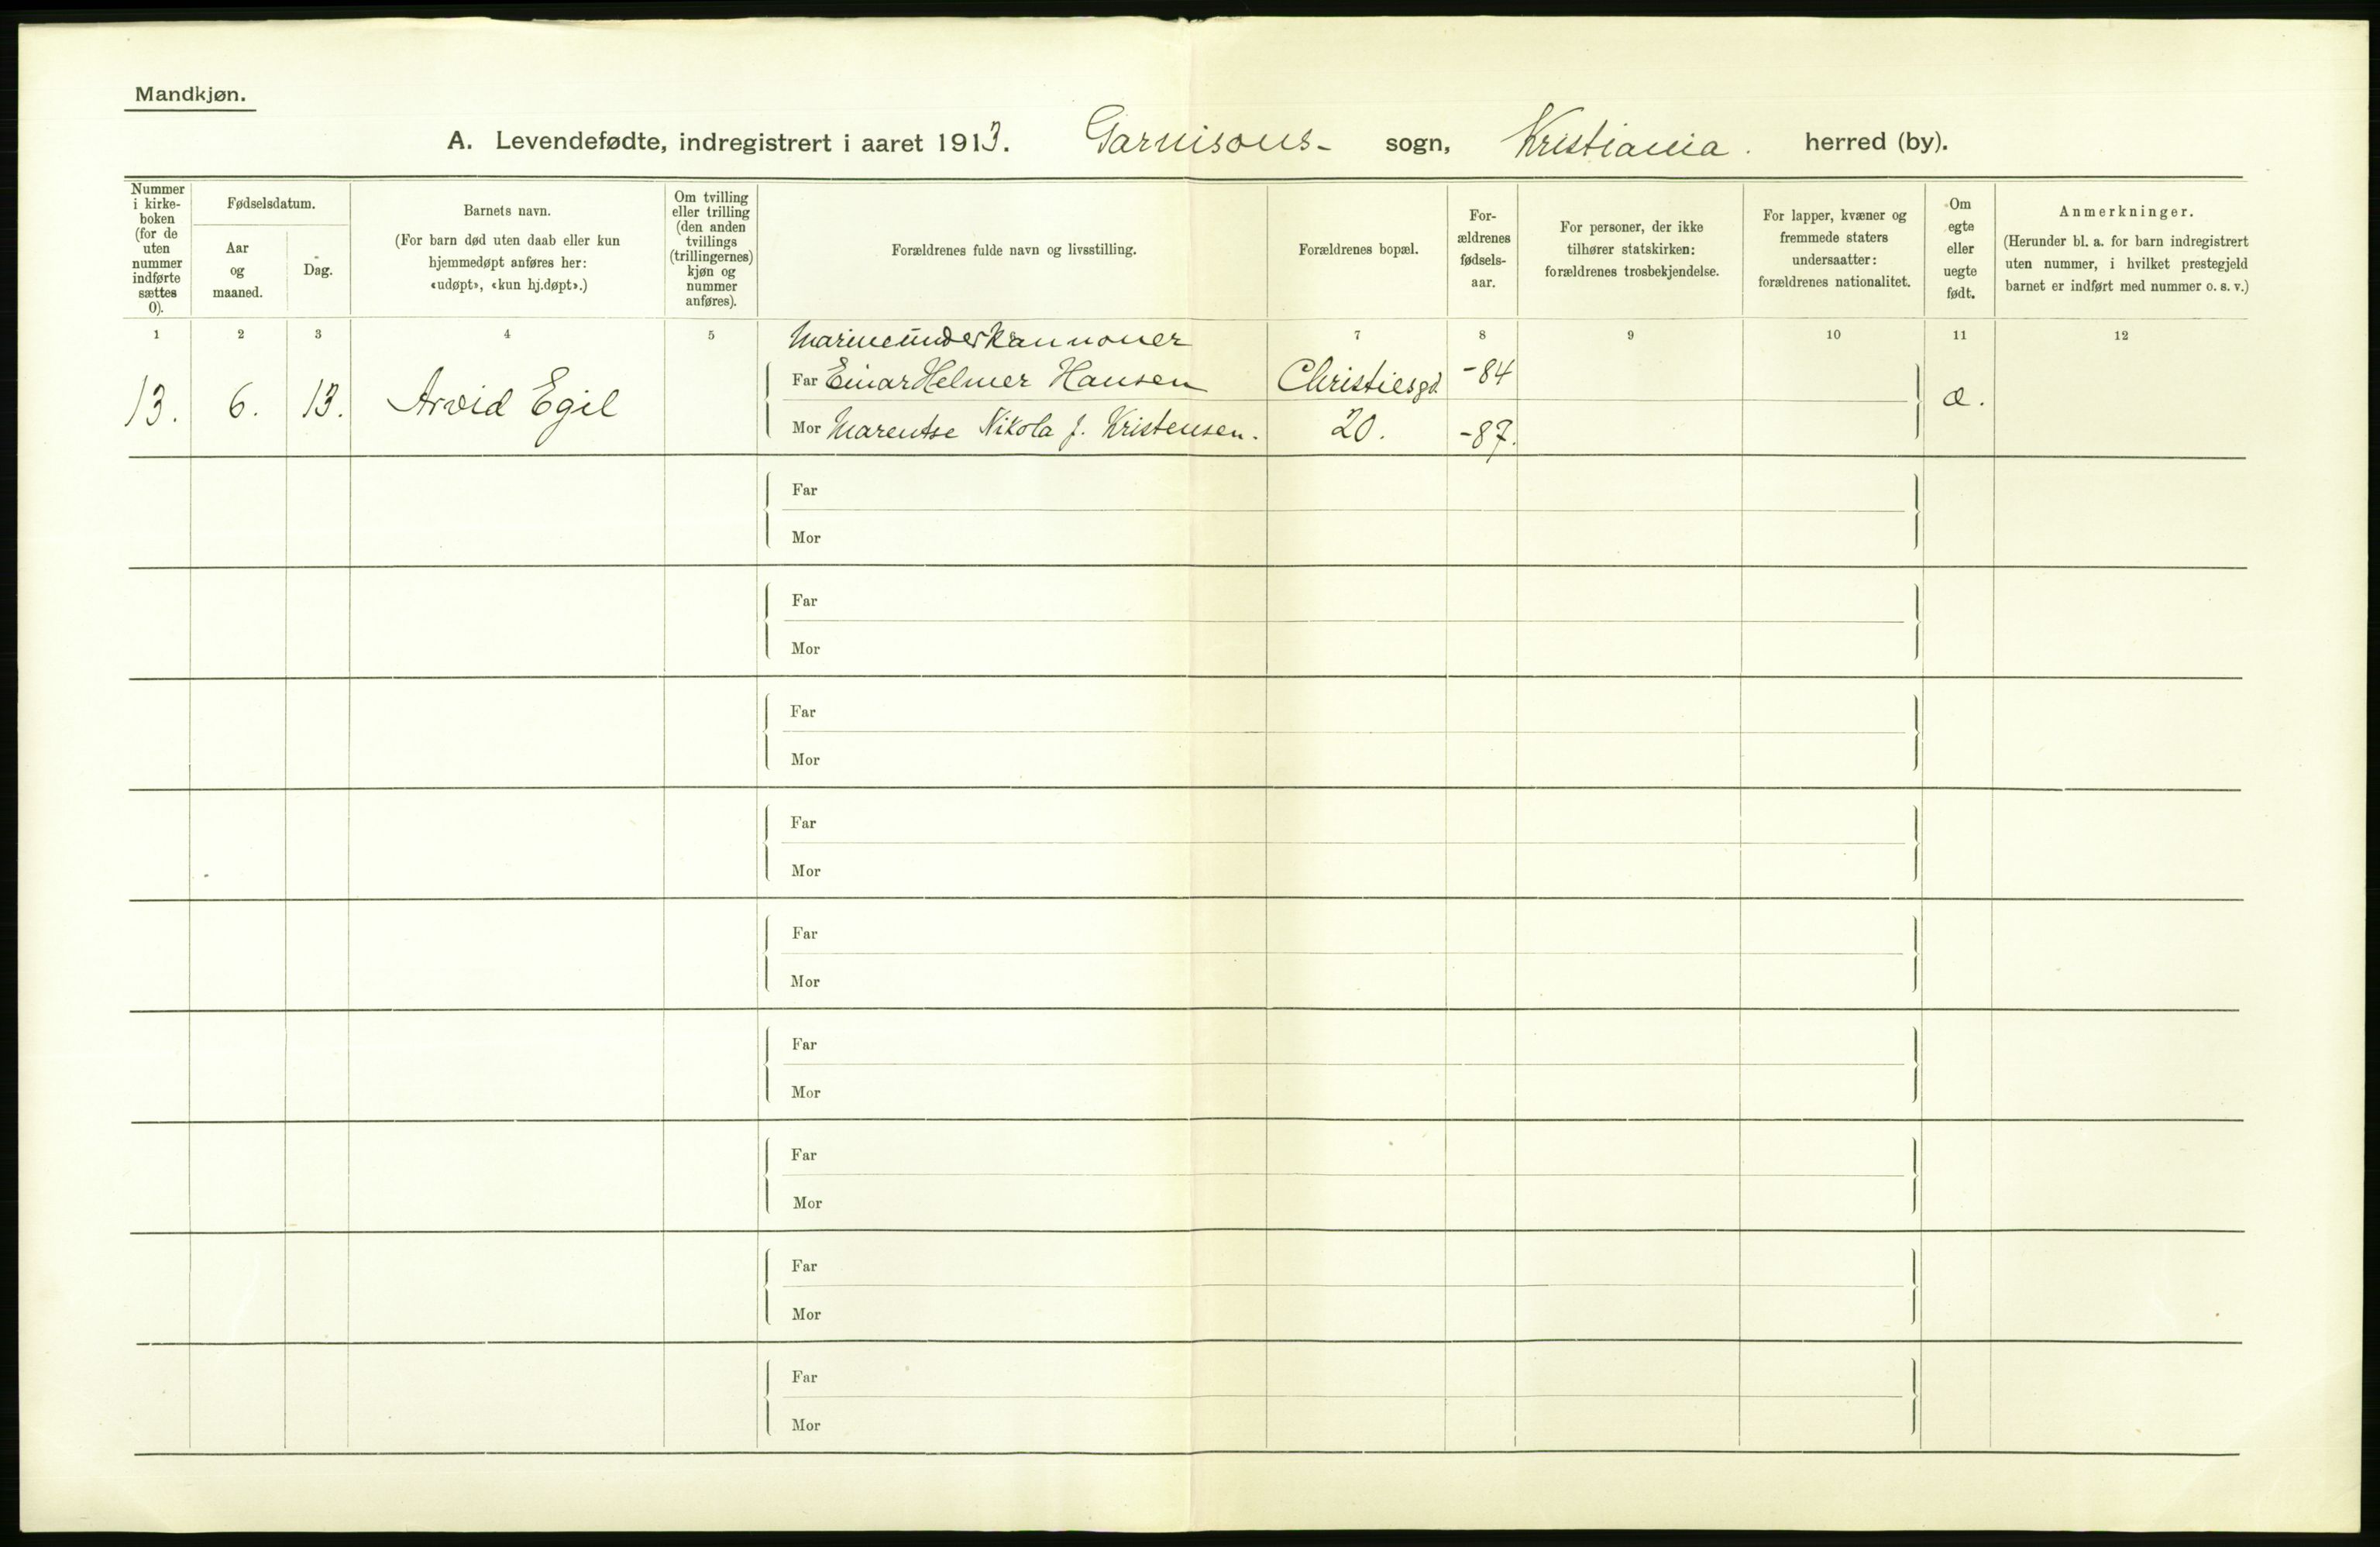 Mandkjøn.
A. Levendefødte, indregistrert i aaret 1913. Garnisons- sogn, Kristiania. herred (by).
Nummer
i kirke-
boken
(for de
uten
nummer
indførte
sættes
0).
Fødselsdatum.
Aar
og
maaned.
Dag.
Barnets navn.
(For barn død uten daab eller kun
hjemmedøpt anføres her:
«udøpt», «kun hj.døpt».)
Om tvilling
eller trilling
(den anden
tvillings
(trillingernes)
kjøn og
nummer
anføres).
Forældrenes fulde navn og livsstilling.
Forældrenes bopæl.
For-
ældrenes
fødsels-
aar.
For personer, der ikke
tilhører statskirken:
forældrenes trosbekjendelse.
For lapper, kvæner og
fremmede staters
undersaatter:
forældrenes nationalitet.
Om
egte
eller
uegte
født.
Anmerkninger.
(Herunder bl. a. for barn indregistrert
uten nummer, i hvilket prestegjeld
barnet er indført med nummer o. s. v.)
1 2 3 4 5 7 8 9 10 11 12
Marineunderkannoner
13. 6. 13. Arvid Egil
Far Einar Helmer Hansen Christiesgd. -84
Mor Marentse Nikola f. Kristensen. 20. -87.
æ.
Far
Mor
Far
Mor
Far
Mor
Far
Mor
Far
Mor
Far
Mor
Far
Mor
Far
Mor
Far
Mor